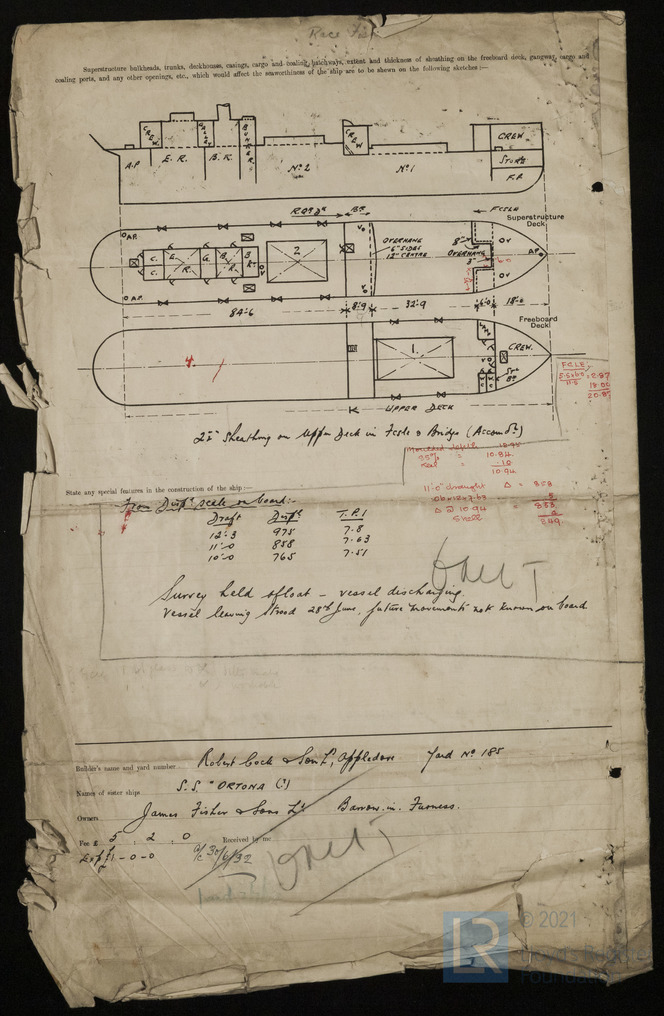 Race Fisk
Superstructure bulkheads, trunks, deckhouses, casings, cargo and coaling hatchways, extent and thickness of sheathing on the freeboard deck, gangway, cargo and
coaling ports, and any other openings, etc., which would affect the seaworthiness of the ship are to be shewn on the following sketches:—
CREW
GALLEY
BUNKER
CREW
CREW
A.P.
E.R.
B.R.
Nº 2
Nº 1
STORE
F.P.
RQᴰ Dᴷ
Bᴳᴱ
FCSLE
Superstructure
Deck
A.P.
2
OVERHANG
6" SIDES
12" CENTRE
8"
OVERHANG
3"
6.0
A.P.
A.P.
84'-6
8'-9
32'-9
6'-0
18'-0
Freeboard
Deck
4.
1.
CREW.
UPPER DECK
FCLE
2.87
18.00
20.87
2½" Sheathing on Upper Deck in Fcsle & Bridge (Accomᵈⁿ)
Moulded depth 12.75
85% = 10.84
keel = .10
10.94
State any special features in the construction of the ship:—
From Dispᵗ scale on board:-
11'-0" draught Δ = 858
.06 × 12 × 7.63
Δ @ 10.94
Shell
849
Draft Dispᵗ T.P.I
12'-3 975 7.8
11'-0 858 7.63
10'-0 765 7.51
Survey held afloat – vessel discharging.
Vessel leaving Strood 28th June, future movements not known on board
Builder's name and yard number Robert Cock & Son Lᵈ, Appledore. Yard Nº 185
Names of sister ships S.S. "ORTONA" (?)
Owners James Fisher & Sons Lᵈ Barrow-in-Furness.
Fee £ 5 , 2 , 0 Received by me
Expˢ 1-0-0 a/c 30/6/32
LR
© 2021
Lloyd's Register
Foundation